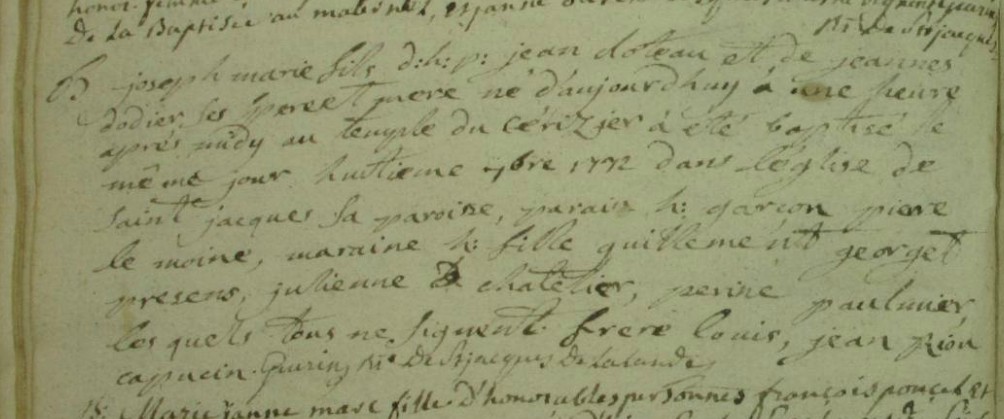 De La Baptisée au
Rr De St jacques
B joseph marie fils d:h:p: jean loteau et de jeannes
dodier ses pere et mere né d'aujourdhuy à une heure
aprés midy au temple du cérizier à été baptisé le
même jour huitieme 7bre 1772 dans l'église de
saint jacques sa paroisse, parain h: garçon piere
le moine, maraine h: fille guillemént georget
presens, julienne chatelier, perine paulmier,
les quels tous ne signent. frere louis, jean Rion
capucin. Rr De St jacques De Lalande
B: Marie janne mare fille D'honorables personnes françois